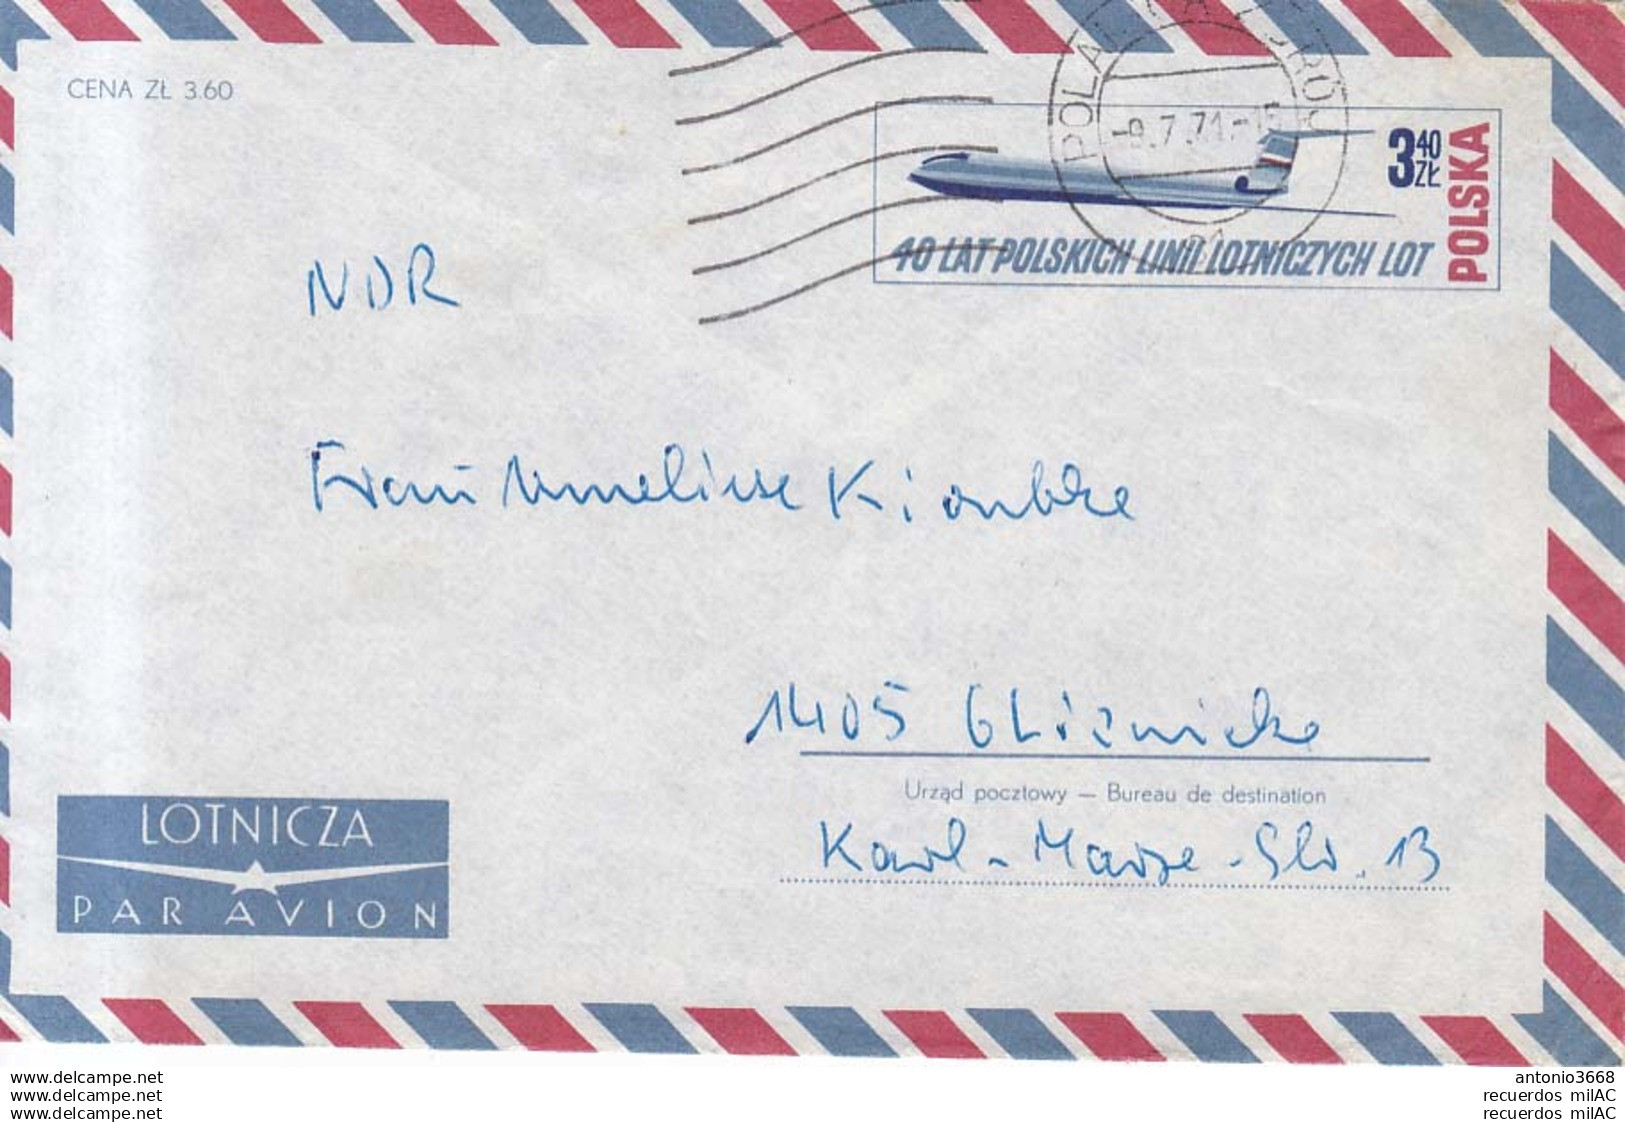 CENA ZŁ 3.60
-9.7.71-
3 40 ZŁ
POLSKA
40 LAT POLSKICH LINII LOTNICZYCH LOT
NDR
Frau Anneliese
1405 Glienicke
Urząd pocztowy — Bureau de destination
Karl-Marx-Str. 13
LOTNICZA
PAR AVION
www.delcampe.net
www.delcampe.net
www.delcampe.net
antonio3668
recuerdos milAC
recuerdos milAC